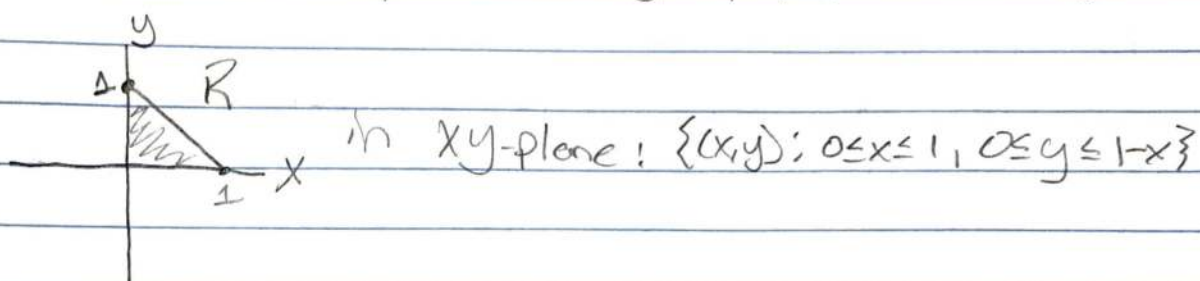 y
1 R
in xy-plane: {(x,y): 0≤x≤1, 0≤y≤1-x}
x
1